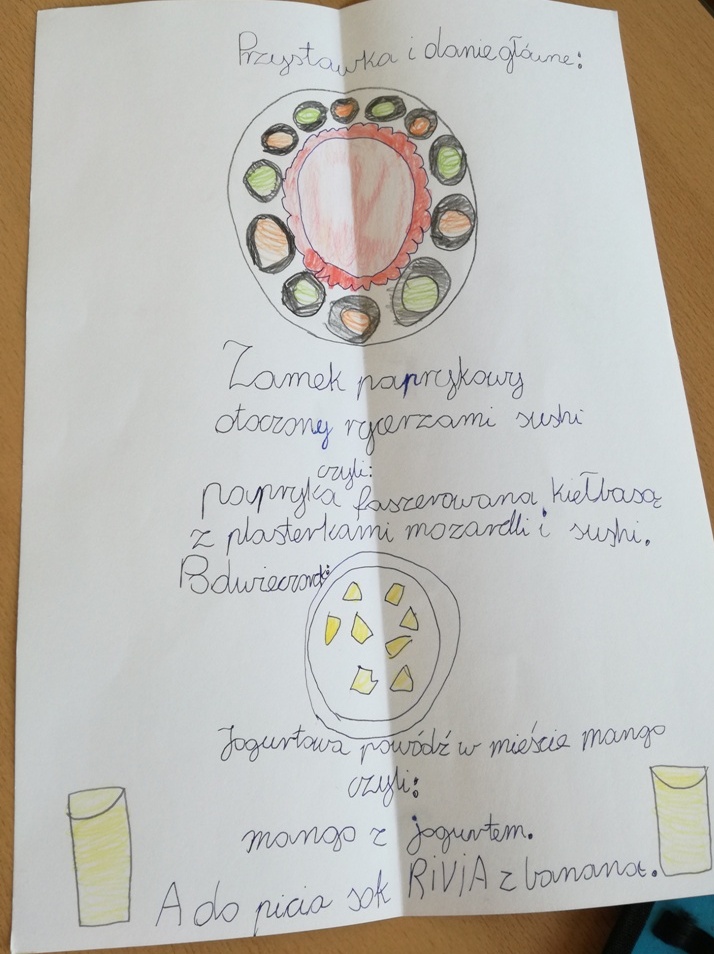 Przystawka i danie główne:
Zamek paprykowy
otoczony rycerzami sushi
czyli:
papryka faszerowana kiełbasą
z plasterkami mozarelli i sushi.
Podwieczorek:
Jogurtowa powódź w mieście mango
czyli:
mango z jogurtem.
A do picia sok RiViA z banana.